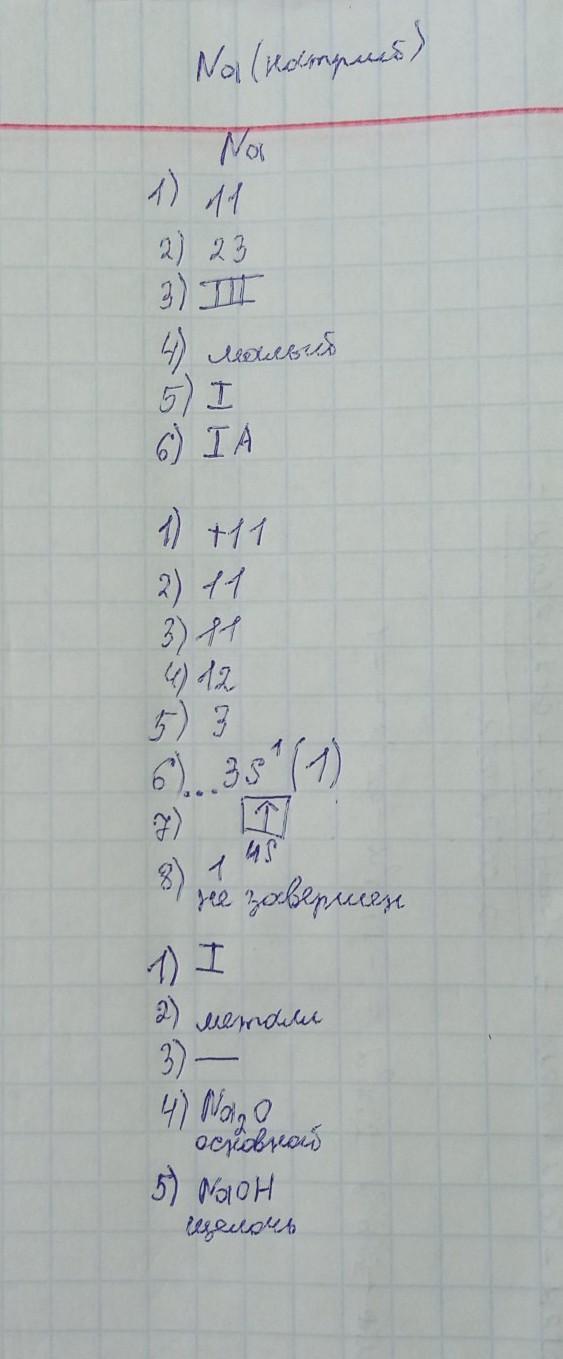 Na (натрий)
Na
1) 11
2) 23
3) III
4) малый
5) I
6) IA
1) +11
2) 11
3) 11
4) 12
5) 3
6) ...3s¹(1)
7) ↑
4s
8) 1
не завершен
1) I
2) металл
3) —
4) Na₂O
основной
5) NaOH
щелочь